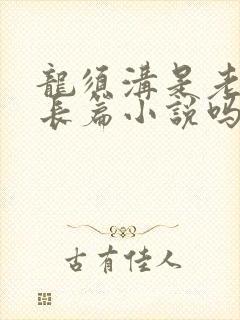 龍須溝是老
長篇小說嗎
古有佳人